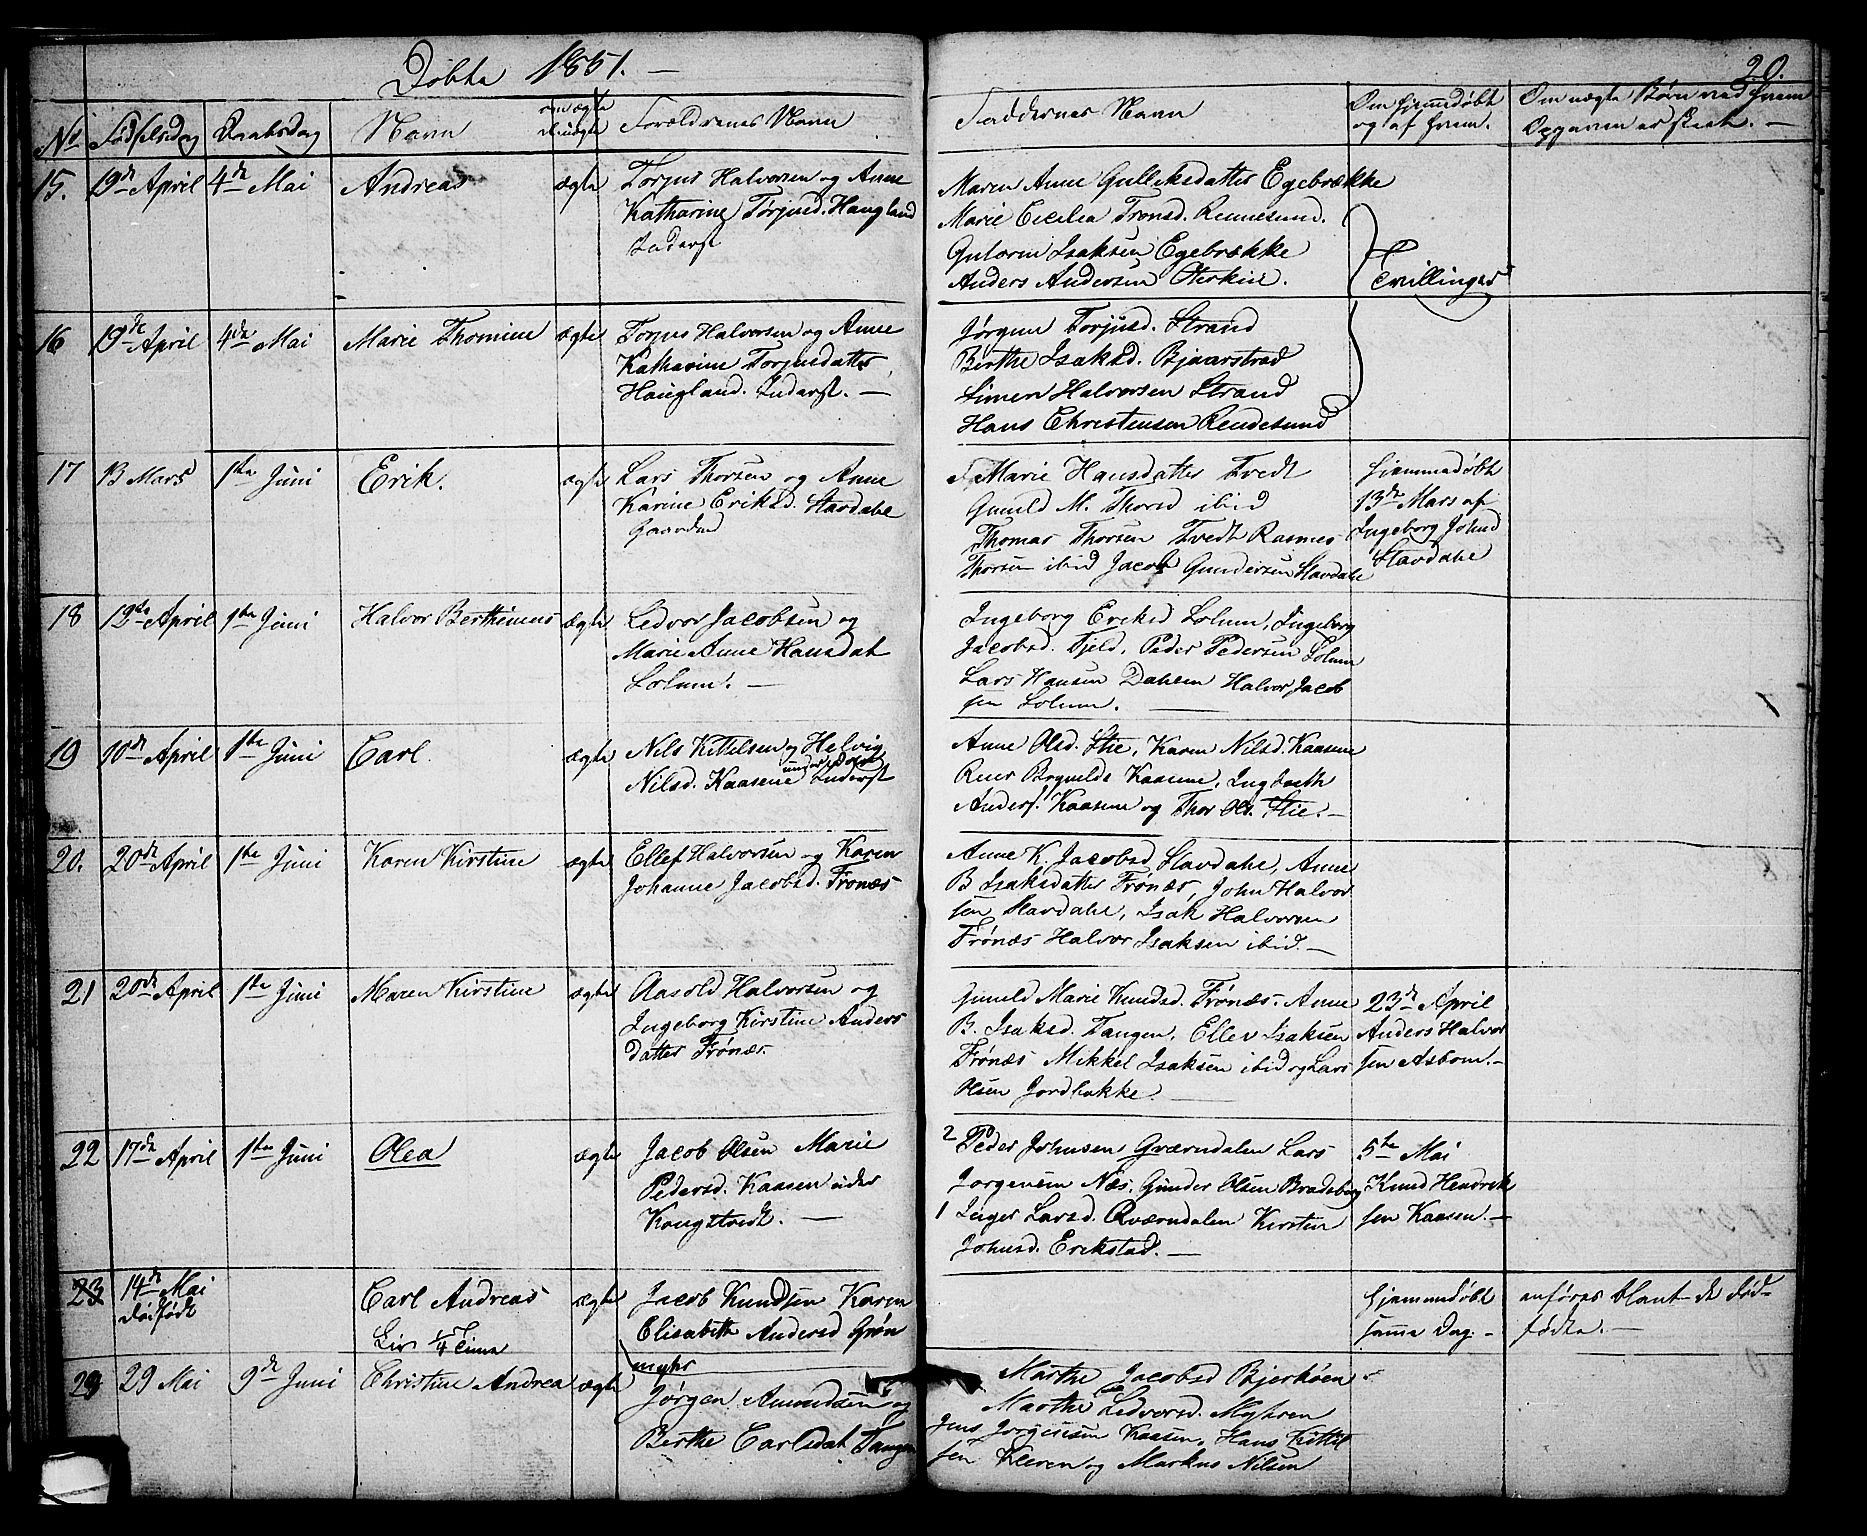 Døbte 1851. —
20.
No Fødselsdag Daabsdag Navn om ægte el. uægte Forældrenes Navn Faddernes Navn Om hjemmedøbt Om uægte Børn ved hvem
og af hvem. Opgaven er skeet. —
15. 19de April 4de Mai Andreas ægte Torjus Halvorsen og Anne
Katharine Torjusd. Haugland
Inderst
Maren Anne Gulleksdatter Egebrække
Marie Cecilia Tronsd. Rennesund.
Gutorm Isaksen Egebrække
Anders Andersen Oterkin.
Tvillinger
16 19de April 4de Mai Marie Thomine ægte Torjus Halvorsen og Anne
Katharine Torjusdatter
Haugland. Inderst. —
Jørgine Torjusd. Strand
Berthe Isaksd. Bjaarstrad
Simen Halvorsen Strand
Hans Christensen Rendesund
17 13 Mars 1ste Juni Erik. ægte Lars Thorsen og Anne
Karine Eriksd. Stavdahl
Gaardm
Marie Hansdatter Tvedt
Gunild M. Thorsd ibid
Thomas Thorsen Tvedt Rasmus
Thorsen ibid Jacob Gundersen Stavdahl
hjemmedøbt
13de Mars af
Ingeborg Johnsd
Stavdahl
18 13de April 1ste Juni Halvor Berthinius ægte Ledvor Jacobsen og
Marie Anne Hansdat
Solum. —
Ingeborg Eriksd Solum, Ingeborg
Jacobsd. Fjeld, Peder Pedersen Solum
Lars Hansen Dahlen Halvor Jacob
sen Solum.
19 10de April 1ste Juni Carl ægte Nils Kittelsen og Helvig
Nilsd. Kaasene Inderst
Anne Olsd. Stie, Karen Nilsd. Kaasene
Kaasene,
Anders. Kaasene og Thor Ols. Stie. —
20. 20de April 1ste Juni Karen Kirstine ægte Ellef Halvorsen og Karen
Johanne Jacobsd. Frønæs
Anne K. Jacobsd. Stavdahl, Anne
B Isaksdatter Frønæs, John Halvor
sen Stavdahl, Isak Halvorsen
Frønæs Halvor Isaksen ibid. —
21 20de April 1ste Juni Maren Kirstine ægte Aasold Halvorsen og
Ingeborg Kirstine Anders
datter Frønæs.
Gunild Marie Knudsd. Frønæs. Anne
B. Isaksd. Tangen, Ellev Isaksen
Frønæs Mikkel Isaksen ibid og Lars
Olsen Jordbakke.
23de April
Anders Halvor
sen Asbom. —
22 17de April 1ste Juni Olea ægte Jacob Olsen Marie
Pedersd. Kaasen under
Kongstvedt. —
2 Peder Johnsen Qværndalen Lars
Jorgensen Næs. Gunder Olsen Bradsberg
1 Inger Larsd. Qværndalen Kirstin
Johnsd. Erikstad. —
5te Mai
Knud Hendrik
sen Kaasen. —
23 14de Mai Carl Andreas ægte Jacob Knudsen Karen
dødfødt
Liv 1/4 Time Elisabeth Andersd Grøn
myhr
hjemmedøbt
samme Dag. —
anføres blant de død-
fødte. —
23 29 Mai 9de Juni Christine Andrea ægte Jørgen Amundsen og
Berthe Carlsdat Tangen
Marthe Jacobsd Bjerkøen
Marthe Ledvorsd. Myhren
Jens Jorgensen Kaasen, Hans Kittil
sen Kleven og Markus Nilsen